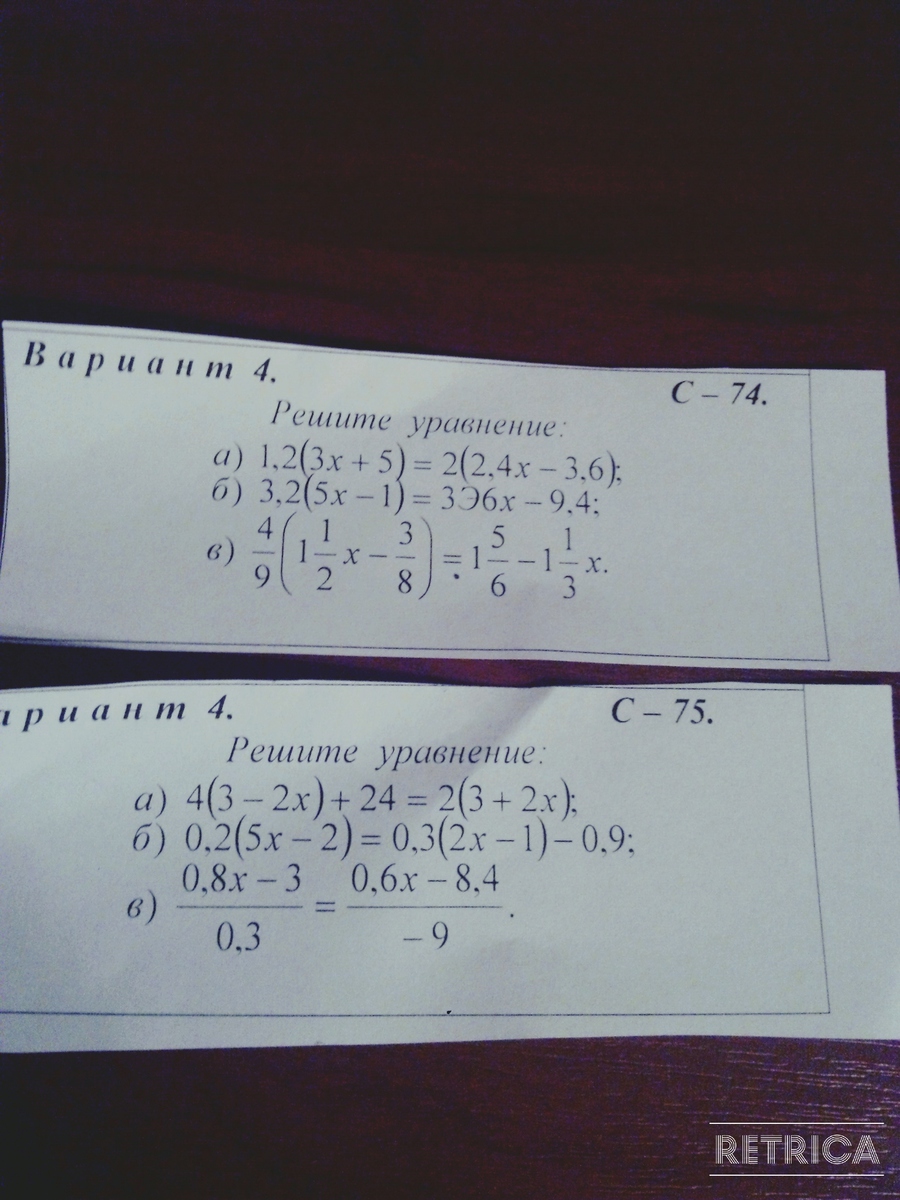 Вариант 4.
С – 74.
Решите уравнение:
а) 1,2(3x + 5) = 2(2,4x – 3,6);
б) 3,2(5x – 1) = 3Э6x – 9,4;
в) 4/9(1 1/2 x – 3/8) = 1 5/6 – 1 1/3 x.
ариант 4.
С – 75.
Решите уравнение:
а) 4(3 – 2x) + 24 = 2(3 + 2x);
б) 0,2(5x – 2) = 0,3(2x – 1) – 0,9;
в) (0,8x – 3)/0,3 = (0,6x – 8,4)/–9.
RETRICA